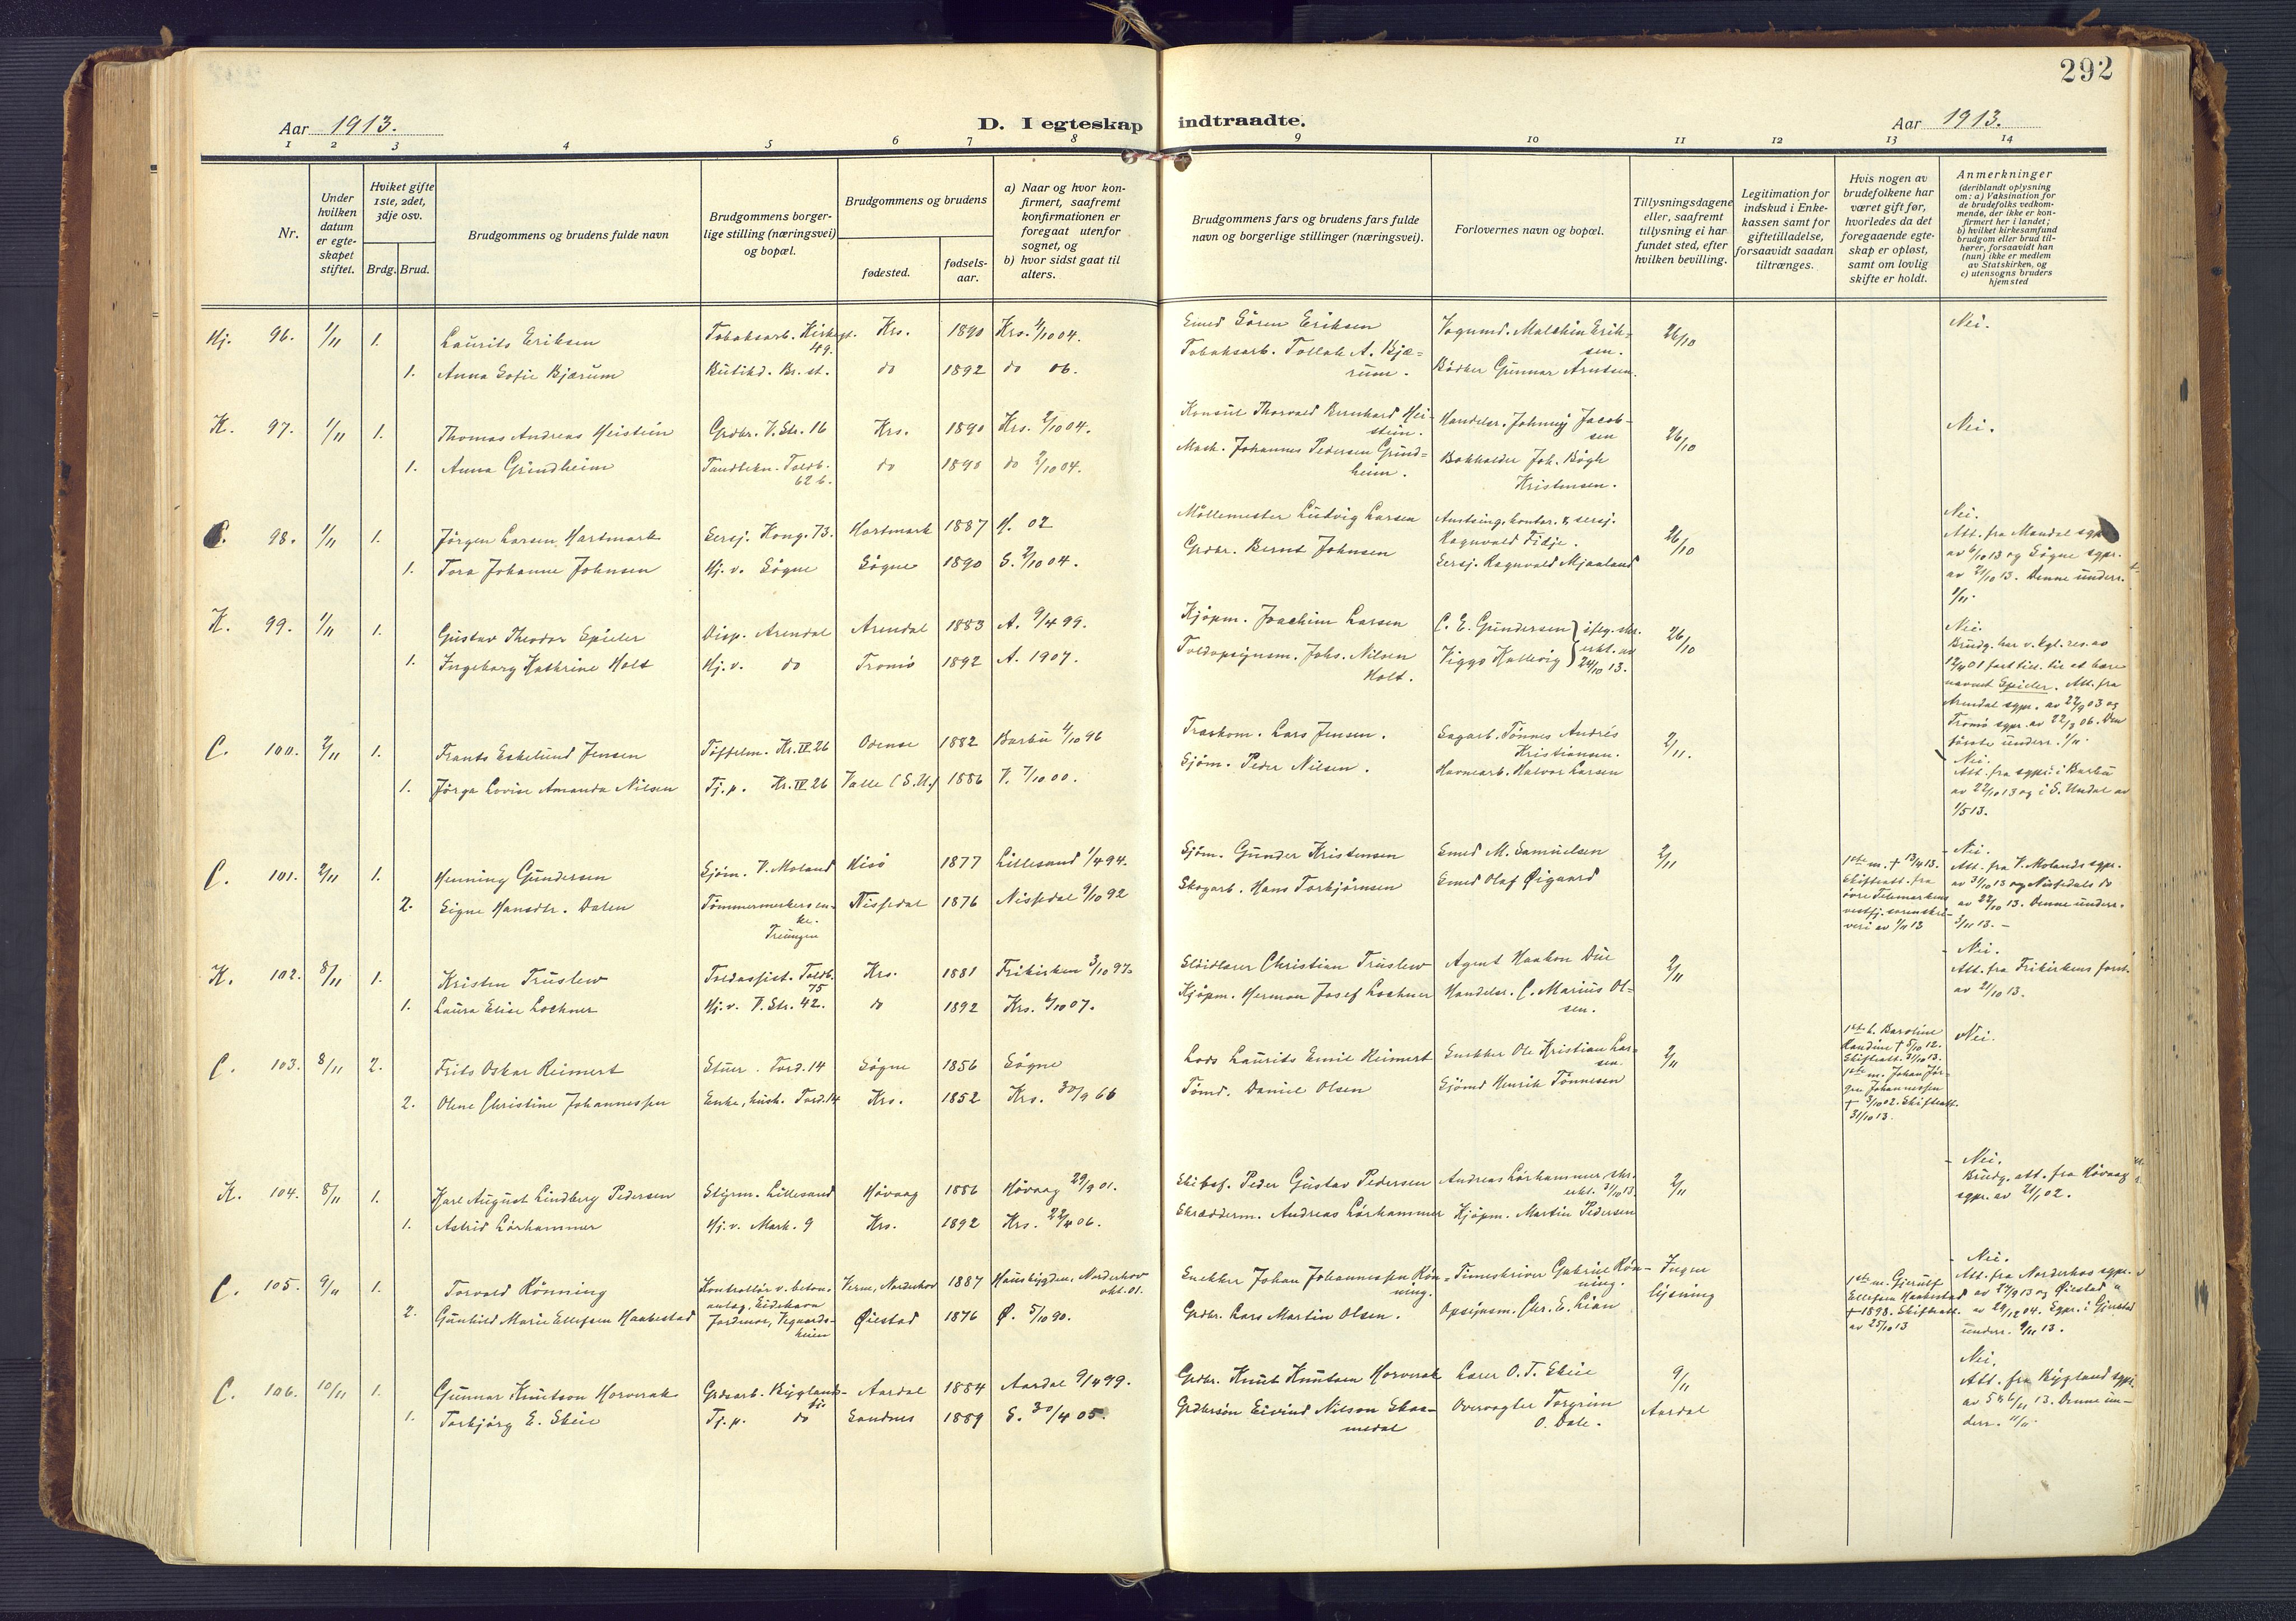 292
Aar 1913.
D. I egteskap indtraadte.
Aar 1913.
1 2 3 4 5 6 7 8 9 10 11 12 13 14
Nr.
Under hvilken datum er egteskapet stiftet.
Hviket gifte 1ste, 2det, 3dje osv.
Brdg. Brud.
Brudgommens og brudens fulde navn
Brudgommens borgerlige stilling (næringsvei) og bopæl.
Brudgommens og brudens
fødested.
fødselsaar.
a) Naar og hvor konfirmert, saafremt konfirmationen er foregaat utenfor sognet, og
b) hvor sidst gaat til alters.
Brudgommens fars og brudens fars fulde navn og borgerlige stillinger (næringsvei).
Forlovernes navn og bopæl.
Tillysningsdagene eller, saafremt tillysning ei har fundet sted, efter hvilken bevilling.
Legitimation for indskud i Enkekassen samt for giftetilladelse, forsaavidt saadan tiltrænges.
Hvis nogen av brudefolkene har været gift før, hvorledes da det foregaaende egteskap er opløst, samt om lovlig skifte er holdt.
Anmerkninger
(deriblandt oplysning om: a) Vaksination for de brudefolks vedkommende, der ikke er konfirmert her i landet; b) hvilket kirkesamfund brudgom eller brud tilhører, forsaavidt han (hun) ikke er medlem av Statskirken, og c) utensogns bruders hjemsted
Hj. 96. 1/11 1. Laurits Eriksen Tobaksarb. Kirkegt. 49. Krs. 1890 Krs. 2/10 04. Smed Sören Eriksen Vognmd. Malchin Eriksen. 26/10 Nei.
1. Anna Sofie Bjærum Butikd. Br. st. do 1892 do 06. Tobaksarb. Tollak A. Bjærum. Bödker Gunnar Arntsen.
K. 97. 1/11 1. Thomas Andreas Heistein Grdbr. V. Str. 16 Krs. 1890 Krs. 2/10 04. Konsul Thorvald Bernhard Heistein. Handelsr. Johnny Jacobsen 26/10 Nei.
1. Anna Grindheim Tandtekn. Toldb. 62 b. do 1890 do 2/10 04. Mask. Johannes Pedersen Grindheim. Bokholder Joh. Bögh Kristensen.
98. 1/11 1. Jörgen Larsen Hartmark Sersj. Kong. 73. Hartmark 1887 H. 02 Möllemester Ludvig Larsen Amtsing. kontor. & sersj. Ragnvald Tidje. 26/10 Nei.
Att. fra Mandal sgpr. av 6/10 13 og Søgne sgpr. av 21/10 13. Denne underr. 1/11.
1. Tora Johanne Johnsen Hj. v. Søgne Søgne 1890 S. 2/10 04. Grdbr. Bernt Johnsen Sersj. Ragnvald Mjaaland
K. 99. 1/11 1. Gustav Theodor Spieler Disp. Arendal Arendal 1883 A. 9/4 99. Kjøpm. Joachim Larsen C. E. Gundersen 26/10 Nei.
Brudg. har v. kgl. res. av 12/4 01 faat till. til at bære navnet Spieler. Att. fra Arendal sgpr. av 27/9 03 og Tromø sgpr. av 22/3 06. Den første underr. 1/11.
1. Ingeborg Kathrine Holt Hj. v. do Tromø 1892 A. 1907. Toldopsynsm. Johs. Nilsen Holt. Viggo Kallevig iflg. skr. erkl. av 24/10 13.
C. 100. 2/11 1. Frants Eskelund Jensen Töffelm. Kr. IV 26 Odense 1882 Barbu 4/10 96 Traskom. Lars Jensen. Sagarb. Tönnes Andrés Kristiansen. 2/11. Nei.
Att. fra sgpr. i Barbu av 22/10 13 og i S. Undal av 1/5 13.
1. Jörga Lovise Amanda Nilsen Tj. p. Kr. IV 26 Valle (S. U.) 1886 V. 7/10 00. Sjöm. Peder Nilsen. Havnearb. Halvor Larsen
C. 101. 2/11 1. Henning Gundersen Sjöm. V. Moland Hisö 1877 Lillesand 1/4 94. Sjöm. Gunder Kristensen Smed M. Samuelsen 2/11 1ste m. † 13/4 13. Skifteatt. fra övre Telemarkens vestfj. sorenskriveri av 1/11 13
Nei.
Att. fra V. Molands sgpr. av 31/10 13 og Nissedals do av 22/10 13. Denne underr. 3/11 13. –
2. Signe Hansdtr. Dalen Tömmermerkers enke. Treungen Nissedal 1876 Nissedal 9/10 92 Skogarb. Hans Torbjörnsen Smed Olaf Øigaard
K. 102. 8/11 1. Kristen Truslew Toldassist. Toldb. 75 Krs. 1881 Frikirken 3/10 97. Slöidlærer Christian Truslew Agent Haakon Due 2/11 Nei.
Att. fra Frikirkens forst. av 21/10 13.
1. Laura Elise Lochner Hj. v. V. Str. 42. do 1892 Krs. 6/10 07. Kjøpm. Herman Josef Lochner Handelsr. C. Marius Olsen.
C. 103. 8/11 2. Frits Oskar Reimert Stuer. Tord. 14 Søgne 1856 Søgne Lods Laurits Emil Reimert Snekker Ole Kristian Larsen 2/11 1ste h. Baroline Randine † 5/10 12. Skifteatt. 31/10 13.
1ste m. Johan Jörgen Johannessen † 3/10 02. Skifteatt. 31/10 13.
Nei.
2. Oline Christine Johannessen Enke, hush. Tord. 14 Krs. 1852 Krs. 30/9 66 Tömd. Daniel Olsen Sjömd Henrik Tönnesen
K. 104. 8/11 1. Karl August Lindberg Pedersen Styrm. Lillesand Høvaag 1886 Høvaag 29/9 01. Skibsf. Peder Gustav Pedersen Andreas Lörhammer skr. erkl. 31/10 13 2/11 Nei.
Brudg. att. fra Høvaag sgpr. av 21/1 02.
1. Astrid Lörhammer Hj. v. Mark. 9 Krs. 1892 Krs. 22/4 06. Skrædderm. Andreas Lörhammer Kjøpm. Martin Pedersen
C. 105. 9/11 1. Torvald Rönning Kontrollör v. betonanlag, Eidehavn Verne, Norderhov 1887 Hausbygden, Norderhov okt. 01. Snekker Johan Johannessen Rönning. Timeskriver Gabriel Rönning. Ingen lysning 1ste m. Gjerulf Ellefsen Haabestad † 1898. Skifteatt. av 25/10 13
Nei.
Att. fra Norderhov sgpr. av 27/9 13 og Øiestad av 29/12 04. Sgpr. i Gjerstad underr. 9/11 13.
2. Gunhild Marie Ellefsen Haabestad Jordmor, Vegaardsheien Øiestad 1876 Ø. 5/10 90. Grdbr. Lars Martin Olsen. Opsynsm. Chr. E. Lian
C. 106. 10/11 1. Gunnar Knutson Horverak Grdsarb. Byglandsfj. Aardal 1884 Aardal 9/4 99. Grdbr. Knut Knutsen Horverak Lærer O. T. Skeie 9/11 Aardal Nei.
Att. fra Bygland sgpr. av 5 & 6/11 13. Denne underr. 11/11
1. Torbjörg E. Skeie Tj. p. do Sandnes 1889 S. 30/4 05. Grdbrsön Eivind Nilson Skaamedal Overvogter Torgrim O. Dale.